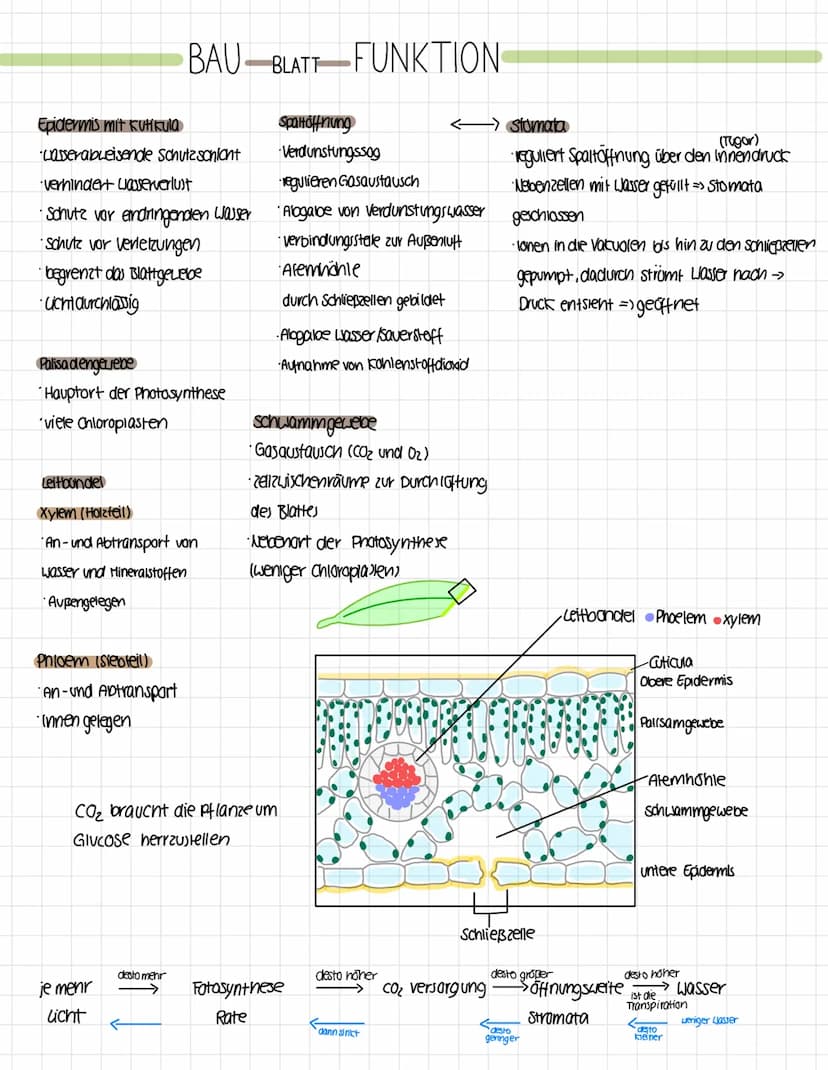 BAU — BLATT — FUNKTION
Epidermis mit Kutikula
· Wasserabweisende Schutzschicht
· verhindert Wasserverlust
· Schutz vor eindringenden Wasser
· Schutz vor Verletzungen
· begrenzt das Blattgewebe
· Lichtdurchlässig
Palisadengewebe
· Hauptort der Photosynthese
· viele Chloroplasten
Leitbündel
Xylem (Holzteil)
· An- und Abtransport von
Wasser und Mineralstoffen
· Außengelegen
Phloem (Siebteil)
· An- und Abtransport
· Innen gelegen
CO₂ braucht die Pflanze um
Glucose herrzustellen
Spaltöffnung
· Verdunstungssog
· regulieren Gasaustausch
· Abgabe von Verdunstungswasser
· Verbindungsstele zur Außenluft
· Atemhöhle
durch Schließzellen gebildet
· Abgabe Wasser/Sauerstoff
· Aufnahme von Kohlenstoffdioxid
Schwammgewebe
· Gasaustausch (CO₂ und O₂)
· Zellzwischenräume zur Durchlüftung
des Blattes
· Nebenort der Photosynthese
(weniger Chloroplasten)
<-> Stomata
(Turgor)
· reguliert Spaltöffnung über den Innendruck
· Nebenzellen mit Wasser gefüllt => Stomata
geschlossen
· Ionen in die Vakuolen bis hin zu den Schließzellen
gepumpt, dadurch strömt Wasser nach →
Druck entsteht => geöffnet
Leitbündel Phoelem Xylem
Cuticula
Obere Epidermis
Palisamgewebe
Atemhöhle
Schwammgewebe
untere Epidermis
Schließzelle
je mehr
Licht
desto mehr
→
←
Fotosynthese
Rate
desto höher
→
←
dann sinkt
CO₂ versorgung
desto größer
→
←
desto
geringer
Öffnungsweite
Stromata
desto höher
→
ist die
Transpiration
←
desto
kleiner
Wasser
weniger Wasser